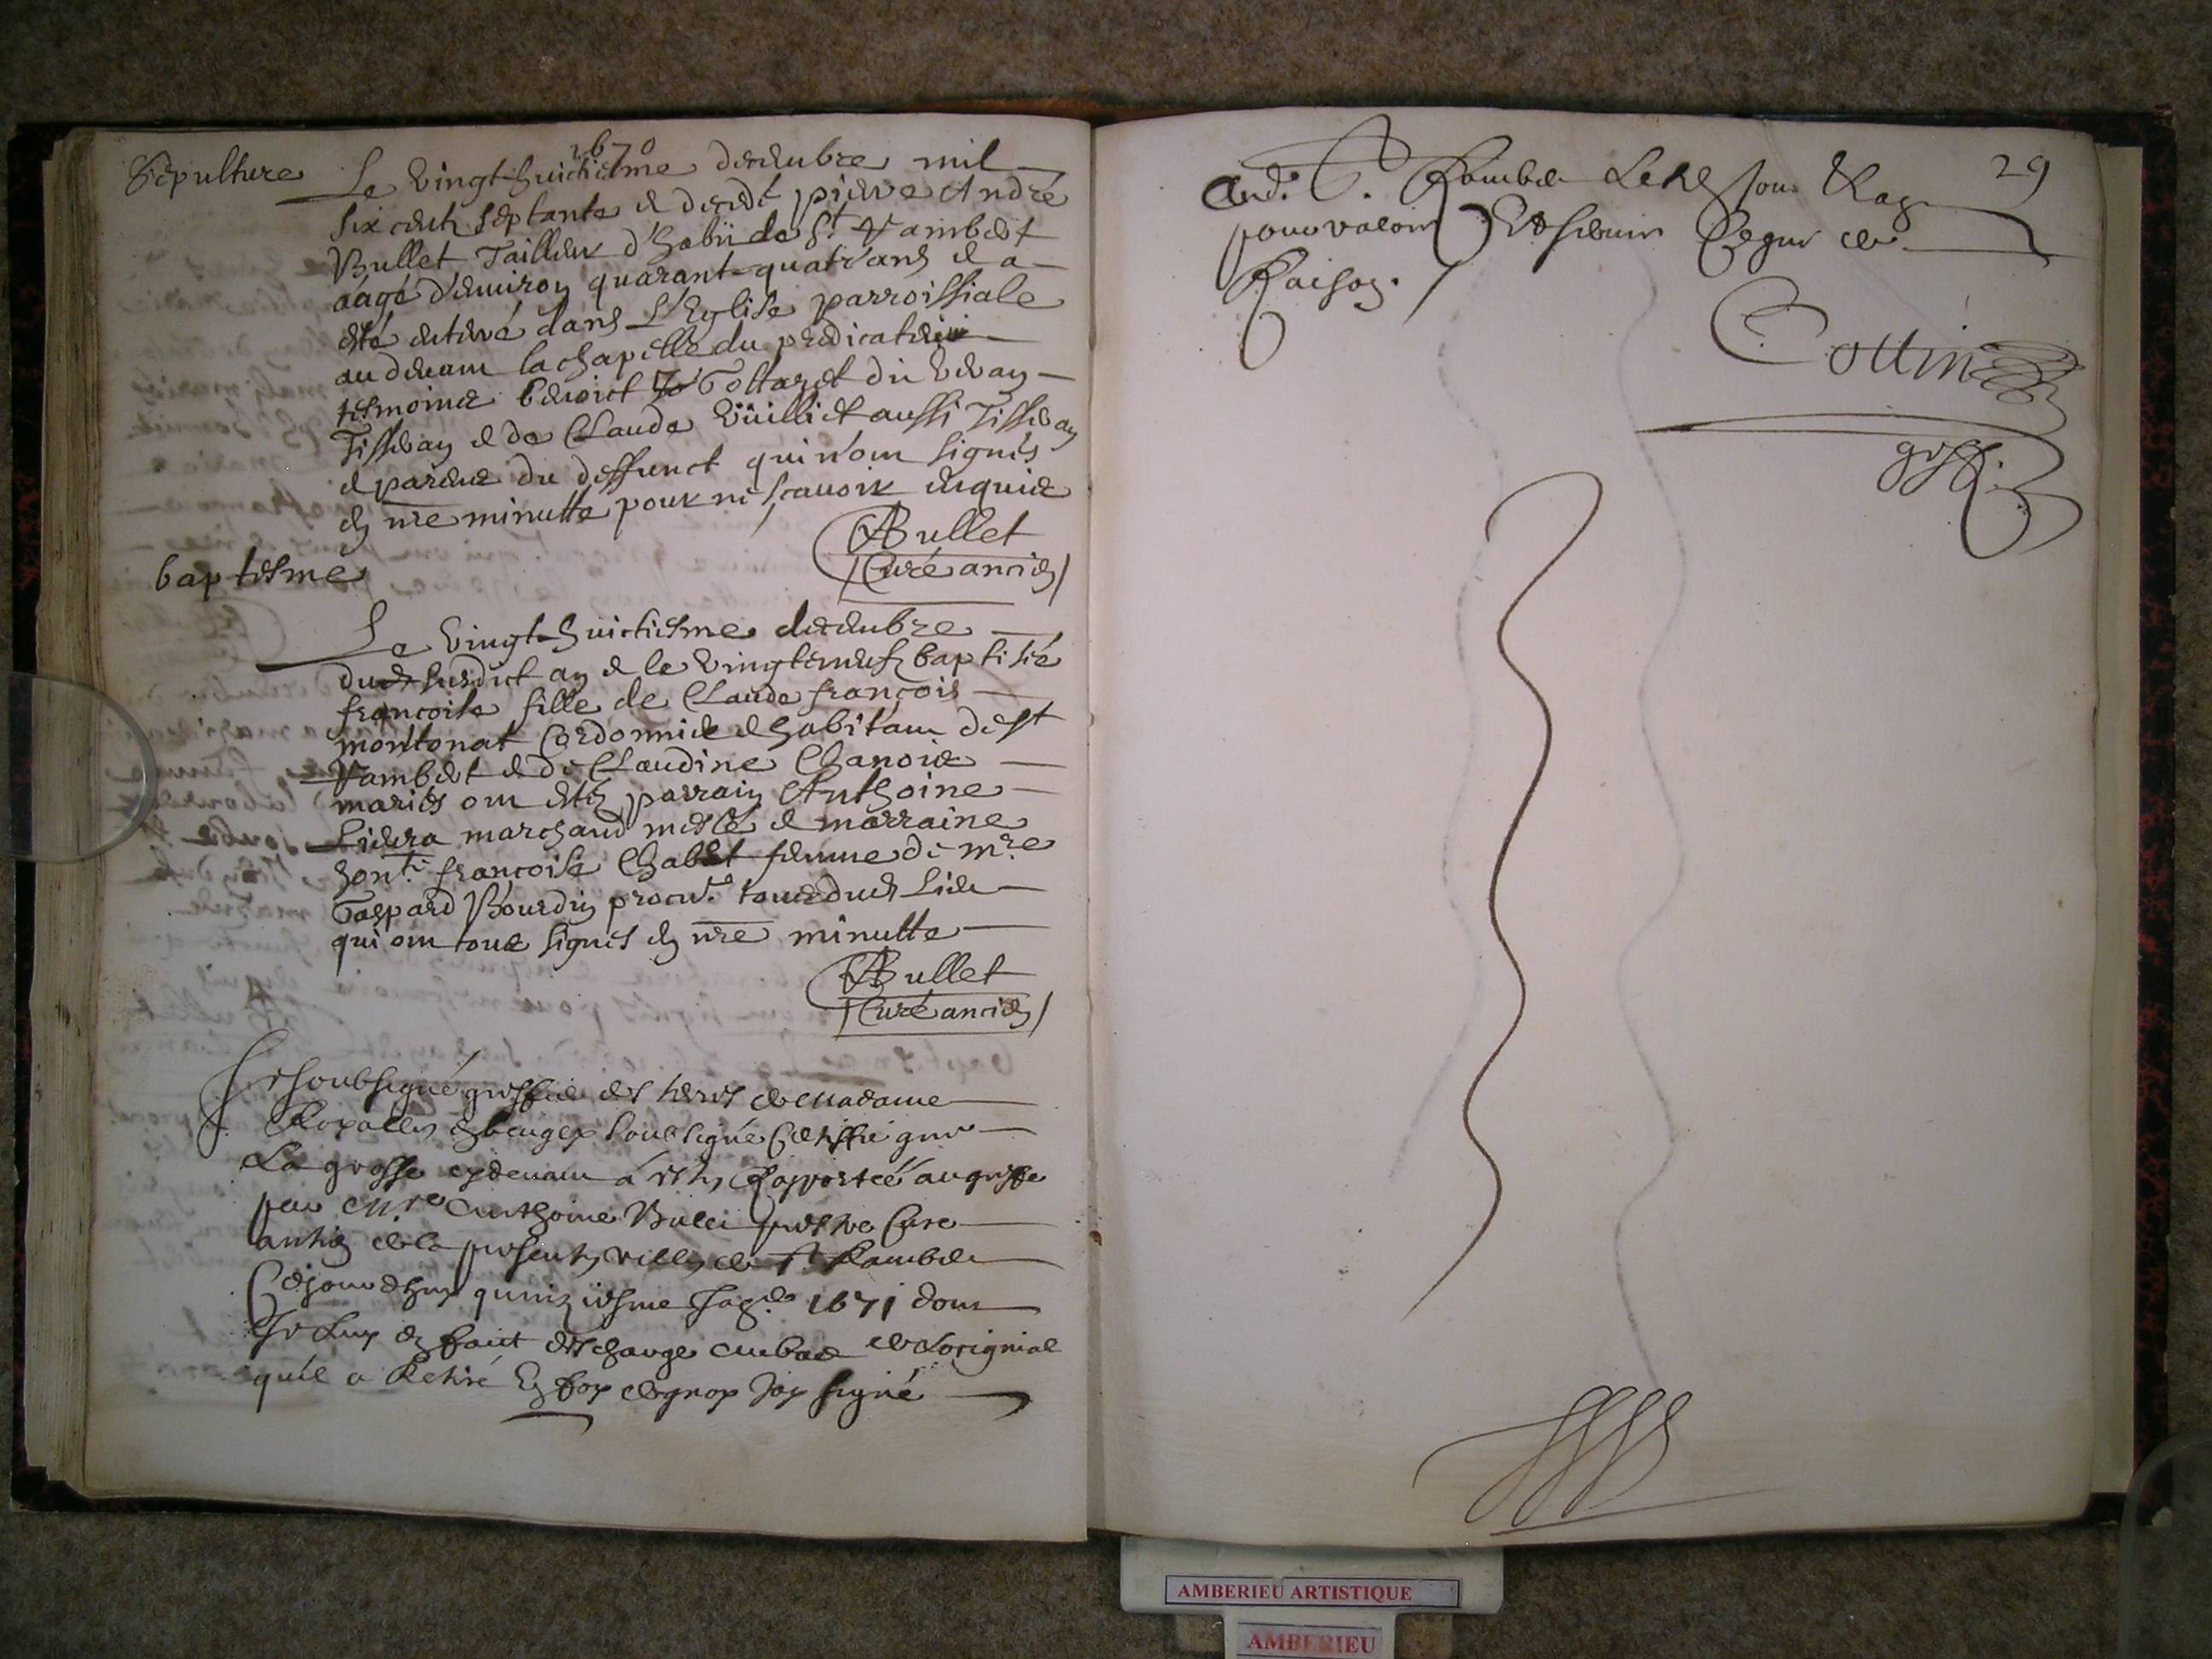 1670
Sepulture Le vingthuictiesme decembre mil
six cents septante est decedé pierre André
Bullet Tailleur d'habii de St Rambert
aagé d'environ quarant-quatr'ans et a
esté enterré dans L'Eglise parroissiale
au devant la chapelle du predicateur
tesmoins benoict Tottaret du
Tisseran et de Claude Vüilliet aussi Tisseran
et parens du deffunct qui n'ont signés
en nre minutte pour ne sçavoir enquis
ABullet
Curé ancien
baptesme
Le vingt-huictiesme decembre
dud susdict an et le vingtneuf baptisée
françoise fille de Claude françois
montonat Cordonnier et habitant de St
Rambert et de Claudine Chanoie
mariés ont estés parrain Anthoine
marchand et marraine
hont. françoise Chabet femme de mre
Gaspard Bourdin procur. dud lieu
qui ont tous signés en nre minutte
ABullet
Curé ancien
Je soubsigné greffier des terres de Madame
Royalle en beugey soubsigné Certiffie que
La grosse cydevant a esté Rapportée au greffe
par Mre Anthoine Bullet prestre Curé
antien de la presente ville de St Rambert
Cejourdhuy quinziesme 1671 dont
Je Luy en faict descharge de Lorignial
qu'il a Retiré En foy de quoy Jay signé
29
aud. St. Rambert Les jour
pour valoir Et servir Ce que de
Raison.
Cottin
greff.
AMBERIEU ARTISTIQUE
AMBERIEU